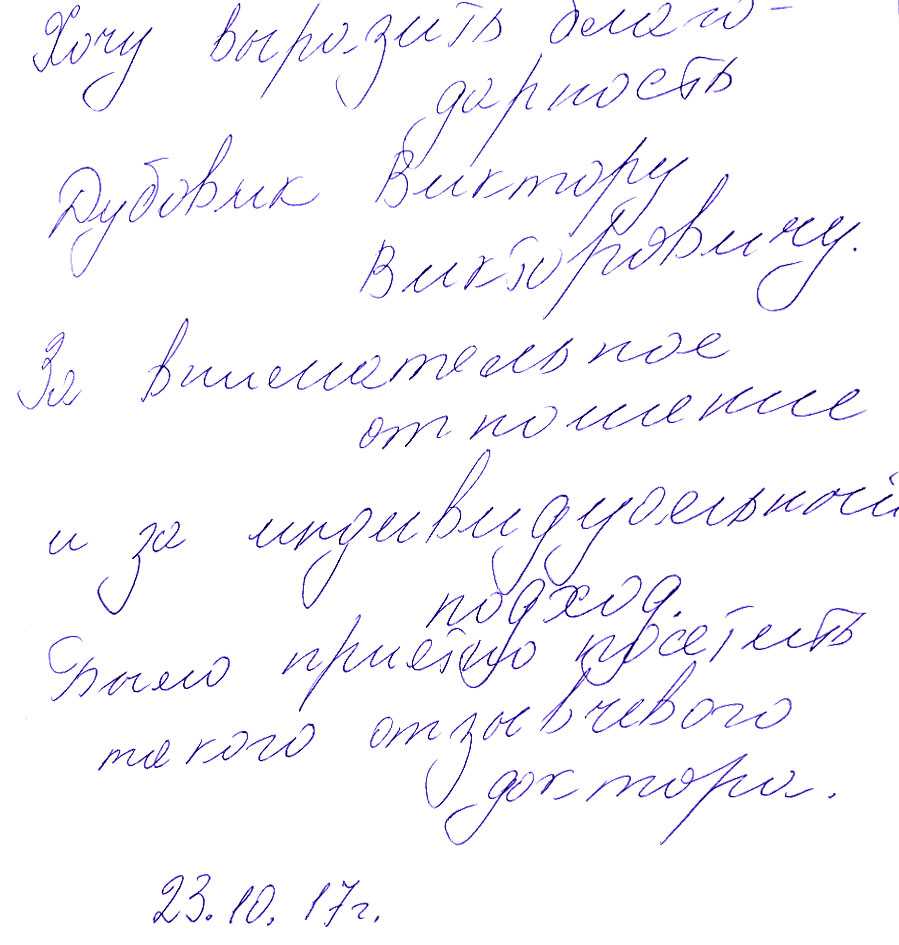 Хочу выразить благо-
дарность
Дубовик Виктору
Викторовичу.
За внимательное
отношение
и за индивидуальный
подход.
Было приятно посетить
такого отзывчевого
доктора.
23.10.17г.